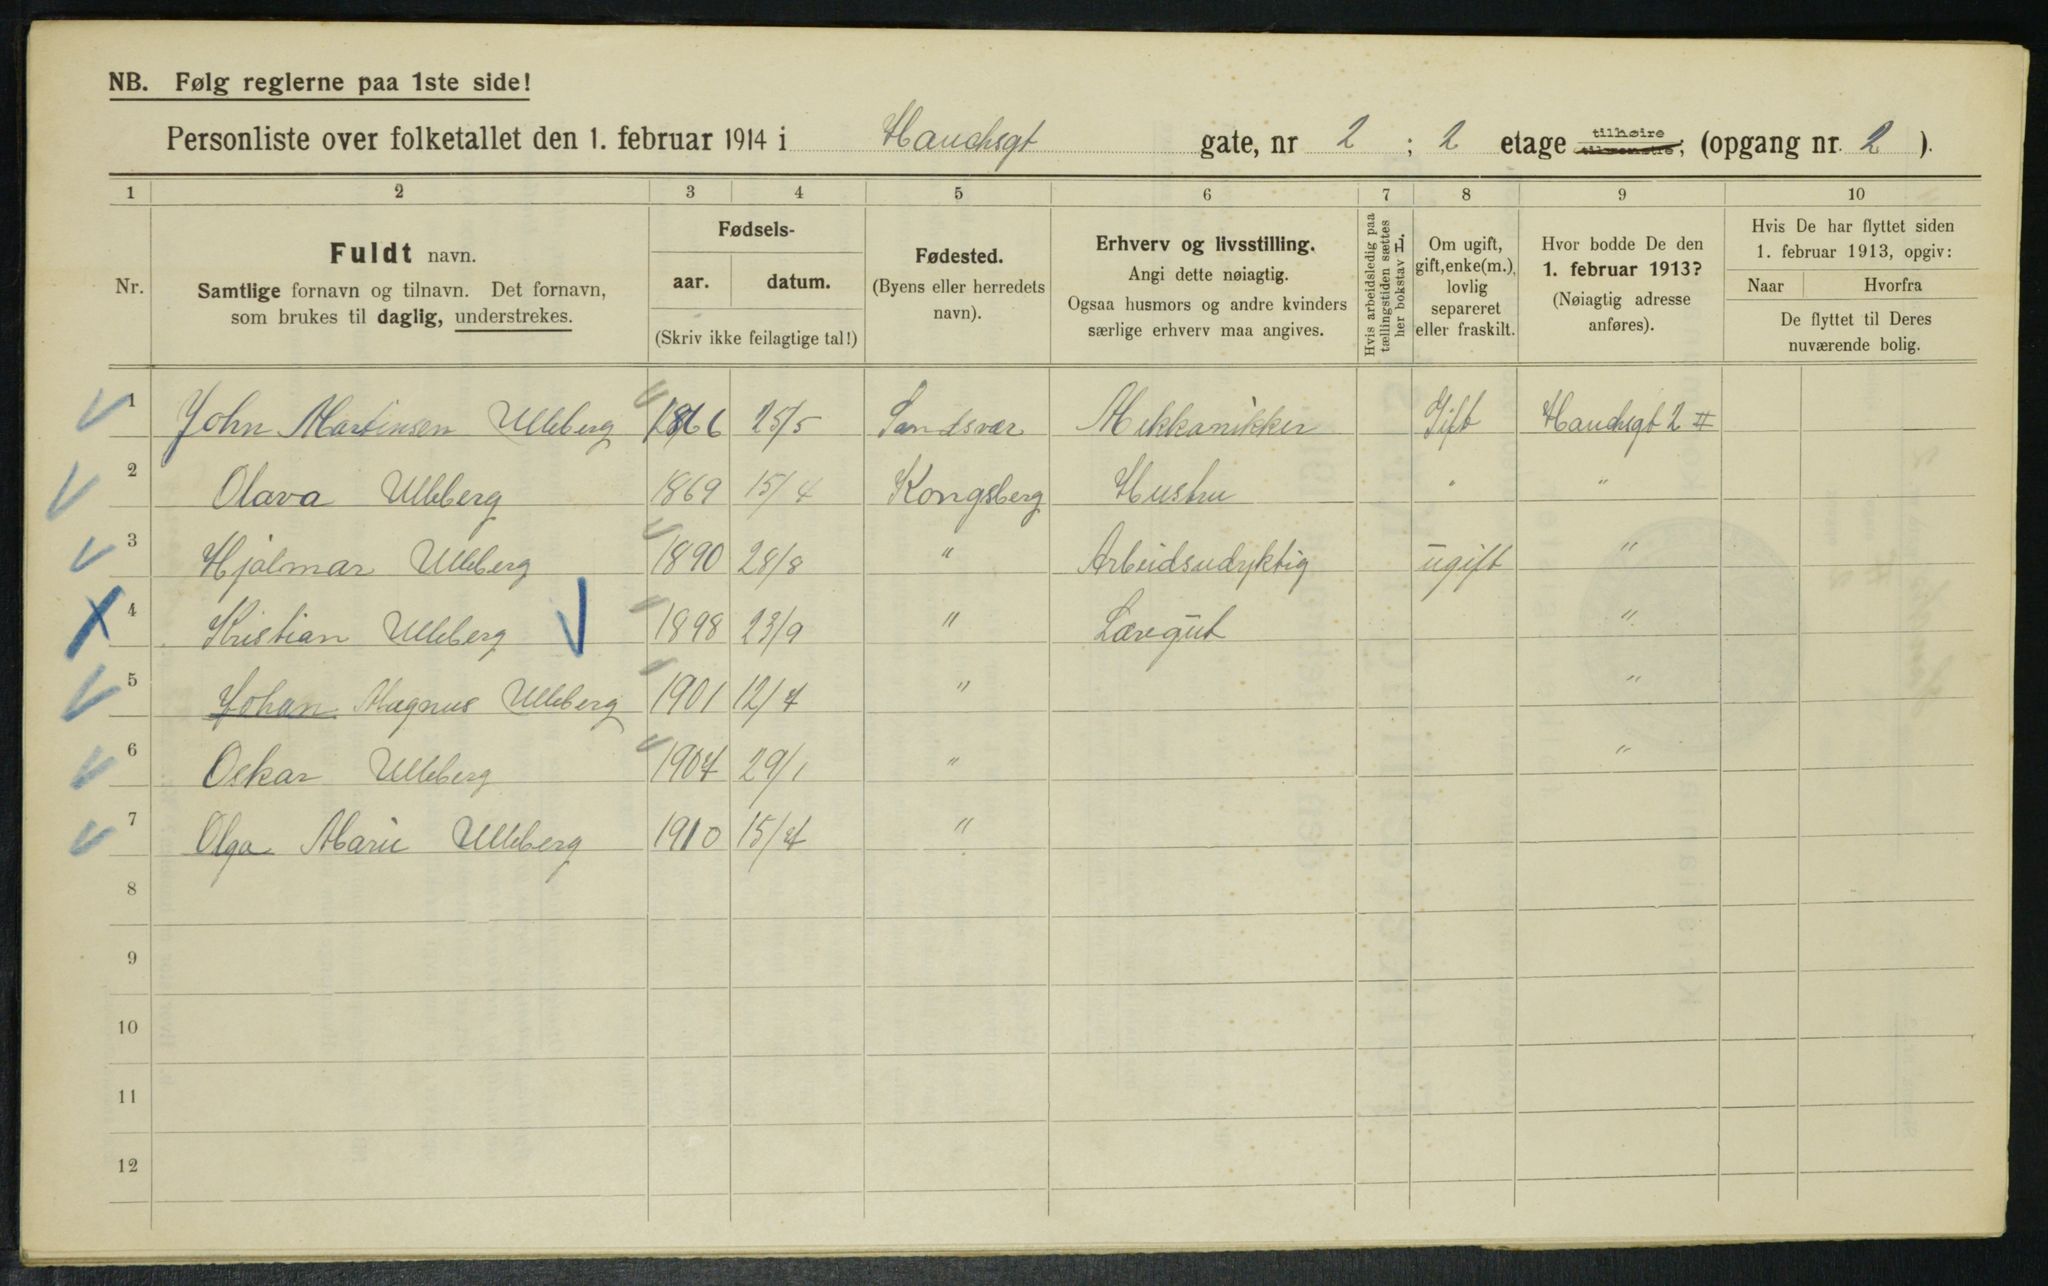 NB. Følg reglerne paa 1ste side!
Personliste over folketallet den 1. februar 1914 i Hauchsgt gate, nr 2 ; 2 etage tilhøire tilvenstre; (opgang nr. 2 ).
1 2 3 4 5 6 7 8 9 10
Nr.
Fuldt navn.
Samtlige fornavn og tilnavn. Det fornavn,
som brukes til daglig, understrekes.
Fødsels-
aar. datum.
(Skriv ikke feilagtige tal!)
Fødested.
(Byens eller herredets
navn).
Erhverv og livsstilling.
Angi dette nøiagtig.
Ogsaa husmors og andre kvinders
særlige erhverv maa angives.
Hvis arbeidsledig paa
tællingstiden sættes
her bokstav L.
Om ugift,
gift, enke(m.),
lovlig
separeret
eller fraskilt.
Hvor bodde De den
1. februar 1913?
(Nøiagtig adresse
anføres).
Hvis De har flyttet siden
1. februar 1913, opgiv:
Naar Hvorfra
De flyttet til Deres
nuværende bolig.
1 John Martinsen Ulleberg 1866 25/5 Sandsvær Mekkanikker Gift Hauchsgt 2 II
2 Olava Ulleberg 1869 15/4 Kongsberg Hustru " "
3 Hjalmar Ulleberg 1890 28/8 " Arbeidsudyktig ugift "
4 Kristian Ulleberg 1898 23/9 " Læregut "
5 Johan Magnus Ulleberg 1901 12/4 " "
6 Oskar Ulleberg 1904 29/1 " "
7 Olga Marie Ulleberg 1910 15/4 "
8
9
10
11
12